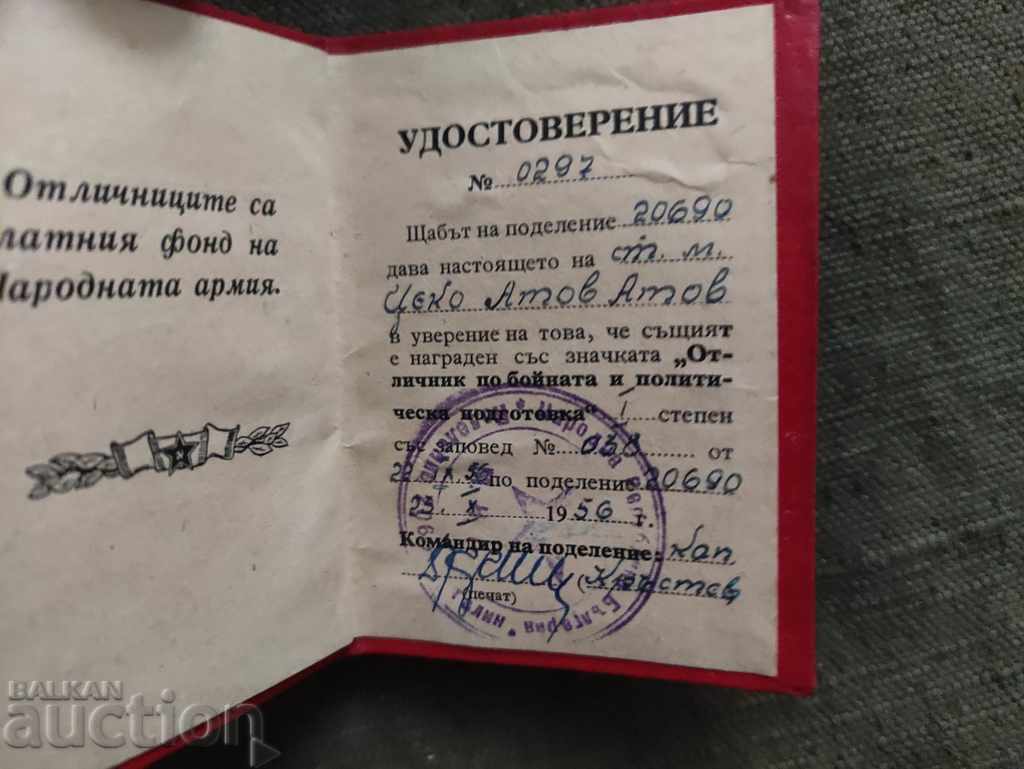 Отличниците са
латния фонд на
Народната армия.
УДОСТОВЕРЕНИЕ
№ 0297
Щабът на поделение 20690
дава настоящето на ст. м.
Цеко Атов Атов
в уверение на това, че същият
е награден със значката „От-
личник по бойната и полити-
ческа подготовка“ I степен
със заповед № 030 от
22.IX.56 по поделение 20690
23. X 1956 г.
Командир на поделение: Кап.
(Кръстев
(печат)
BALKAN
auction